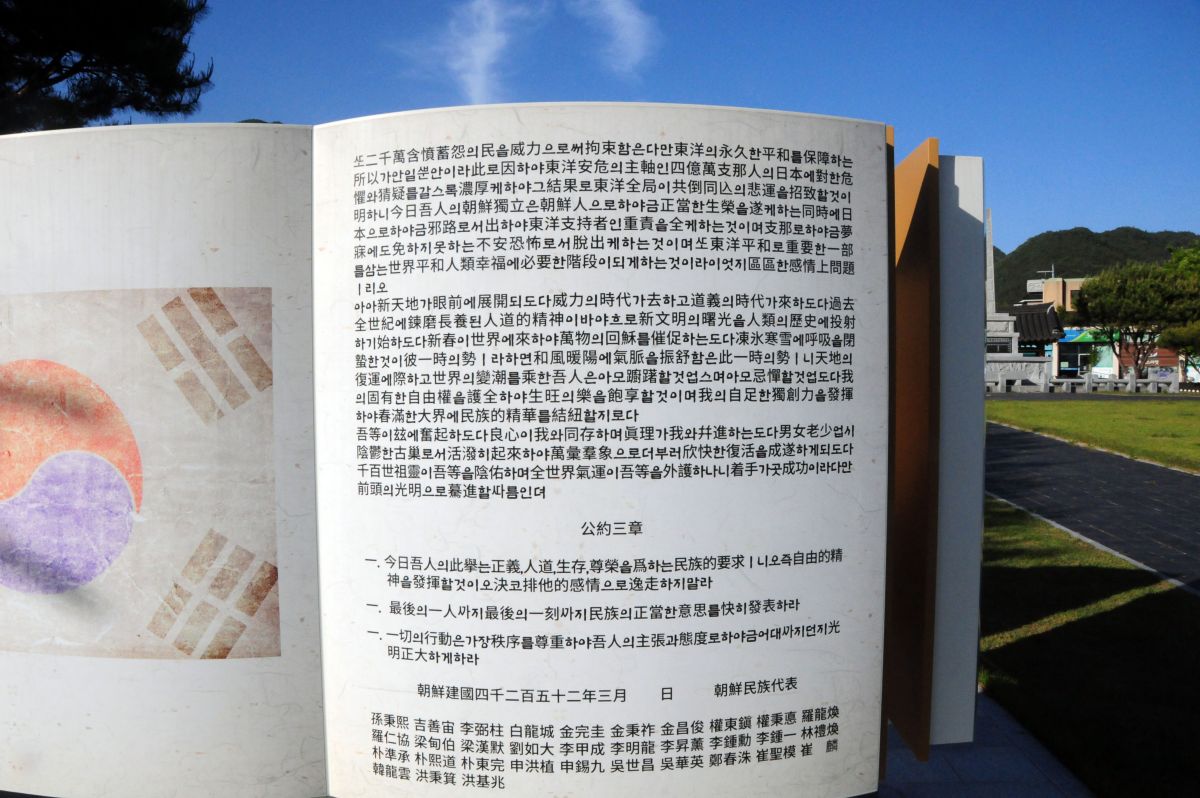 ᄯᅩ二千萬含憤蓄怨의民을威力으로써拘束함은다만東洋의永久한平和를保障하는
所以가안일ᄲᅮᆫ안이라此로因하야東洋安危의主軸인四億萬支那人의日本에對한危
懼와猜疑를갈스록濃厚케하야그結果로東洋全局이共倒同亾의悲運을招致할것이
明하니今日吾人의朝鮮獨立은朝鮮人으로하야금正當한生榮을遂케하는同時에日
本으로하야금邪路로서出하야東洋支持者인重責을全케하는것이며支那로하야금夢
寐에도免하지못하는不安恐怖로서脫出케하는것이며ᄯᅩ東洋平和로重要한一部
를삼는世界平和人類幸福에必要한階段이되게하는것이라이엇지區區한感情上問題
ㅣ리오
아아新天地가眼前에展開되도다威力의時代가去하고道義의時代가來하도다過去
全世紀에鍊磨長養된人道的精神이바야흐로新文明의曙光을人類의歷史에投射
하기始하도다新春이世界에來하야萬物의回穌를催促하는도다凍氷寒雪에呼吸을閉
蟄한것이彼一時의勢ㅣ라하면和風暖陽에氣脈을振舒함은此一時의勢ㅣ니天地의
復運에際하고世界의變潮를乘한吾人은아모躕躇할것업스며아모忌憚할것업도다我
의固有한自由權을護全하야生旺의樂을飽享할것이며我의自足한獨創力을發揮
하야春滿한大界에民族的精華를結紐할지로다
吾等이玆에奮起하도다良心이我와同存하며眞理가我와幷進하는도다男女老少업시
陰鬱한古巢로서活潑히起來하야萬彙羣象으로더부러欣快한復活을成遂하게되도다
千百世祖靈이吾等을陰佑하며全世界氣運이吾等을外護하나니着手가곳成功이라다만
前頭의光明으로驀進할ᄯᅡ름인뎌
公約三章
一. 今日吾人의此擧는正義,人道,生存,尊榮을爲하는民族的要求ㅣ니오즉自由的精
神을發揮할것이오決코排他的感情으로逸走하지말라
一. 最後의一人ᄭᅡ지最後의一刻ᄭᅡ지民族의正當한意思를快히發表하라
一. 一切의行動은가장秩序를尊重하야吾人의主張과態度로하야금어대ᄭᅡ지던지光
明正大하게하라
朝鮮建國四千二百五十二年三月 日 朝鮮民族代表
孫秉熙 吉善宙 李弼柱 白龍城 金完圭 金秉祚 金昌俊 權東鎭 權秉悳 羅龍煥
羅仁協 梁甸伯 梁漢默 劉如大 李甲成 李明龍 李昇薰 李鍾勳 李鍾一 林禮煥
朴準承 朴熙道 朴東完 申洪植 申錫九 吳世昌 吳華英 鄭春洙 崔聖模 崔 麟
韓龍雲 洪秉箕 洪基兆